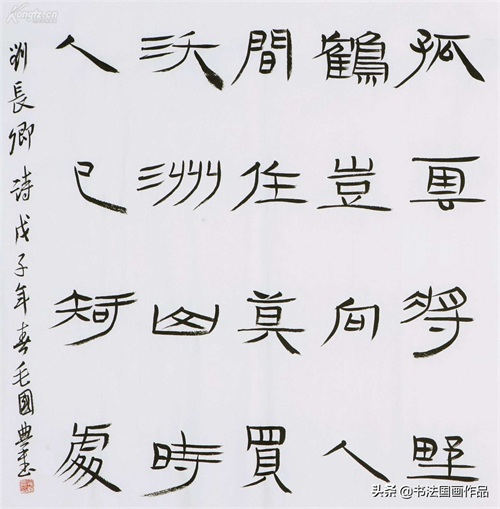 孤雲將野
鶴豈向人
間住莫買
沃洲山時
人已知處
劉長卿詩戊子年春毛國典書
头条 @书法国画作品